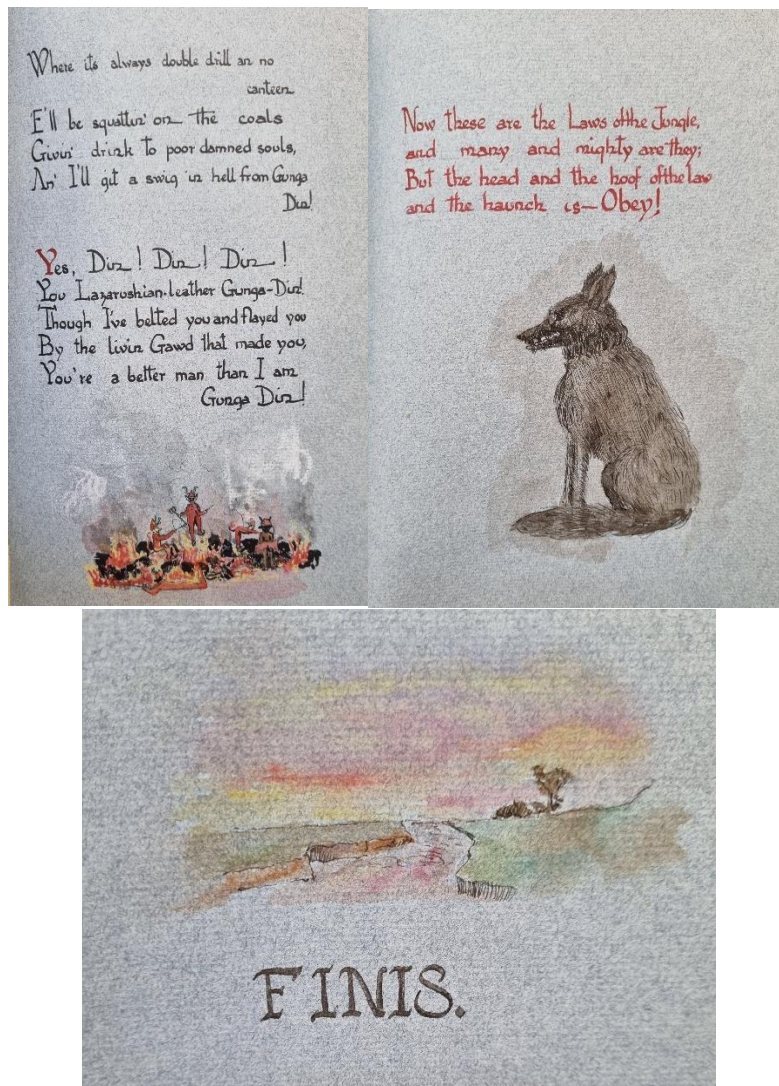 Where its always double drill an no
canteen
E'll be squattin' on the coals
Givin' drink to poor damned souls,
An' I'll git a swig in hell from Gunga
Din!
Yes, Din! Din! Din!
You Lazarushian-leather Gunga-Din!
Though I've belted you and flayed you
By the livin Gawd that made you,
You're a better man than I am
Gunga Din!
Now these are the Laws of the Jungle,
and many and mighty are they;
But the head and the hoof of the law
and the haunch is—Obey!
FINIS.